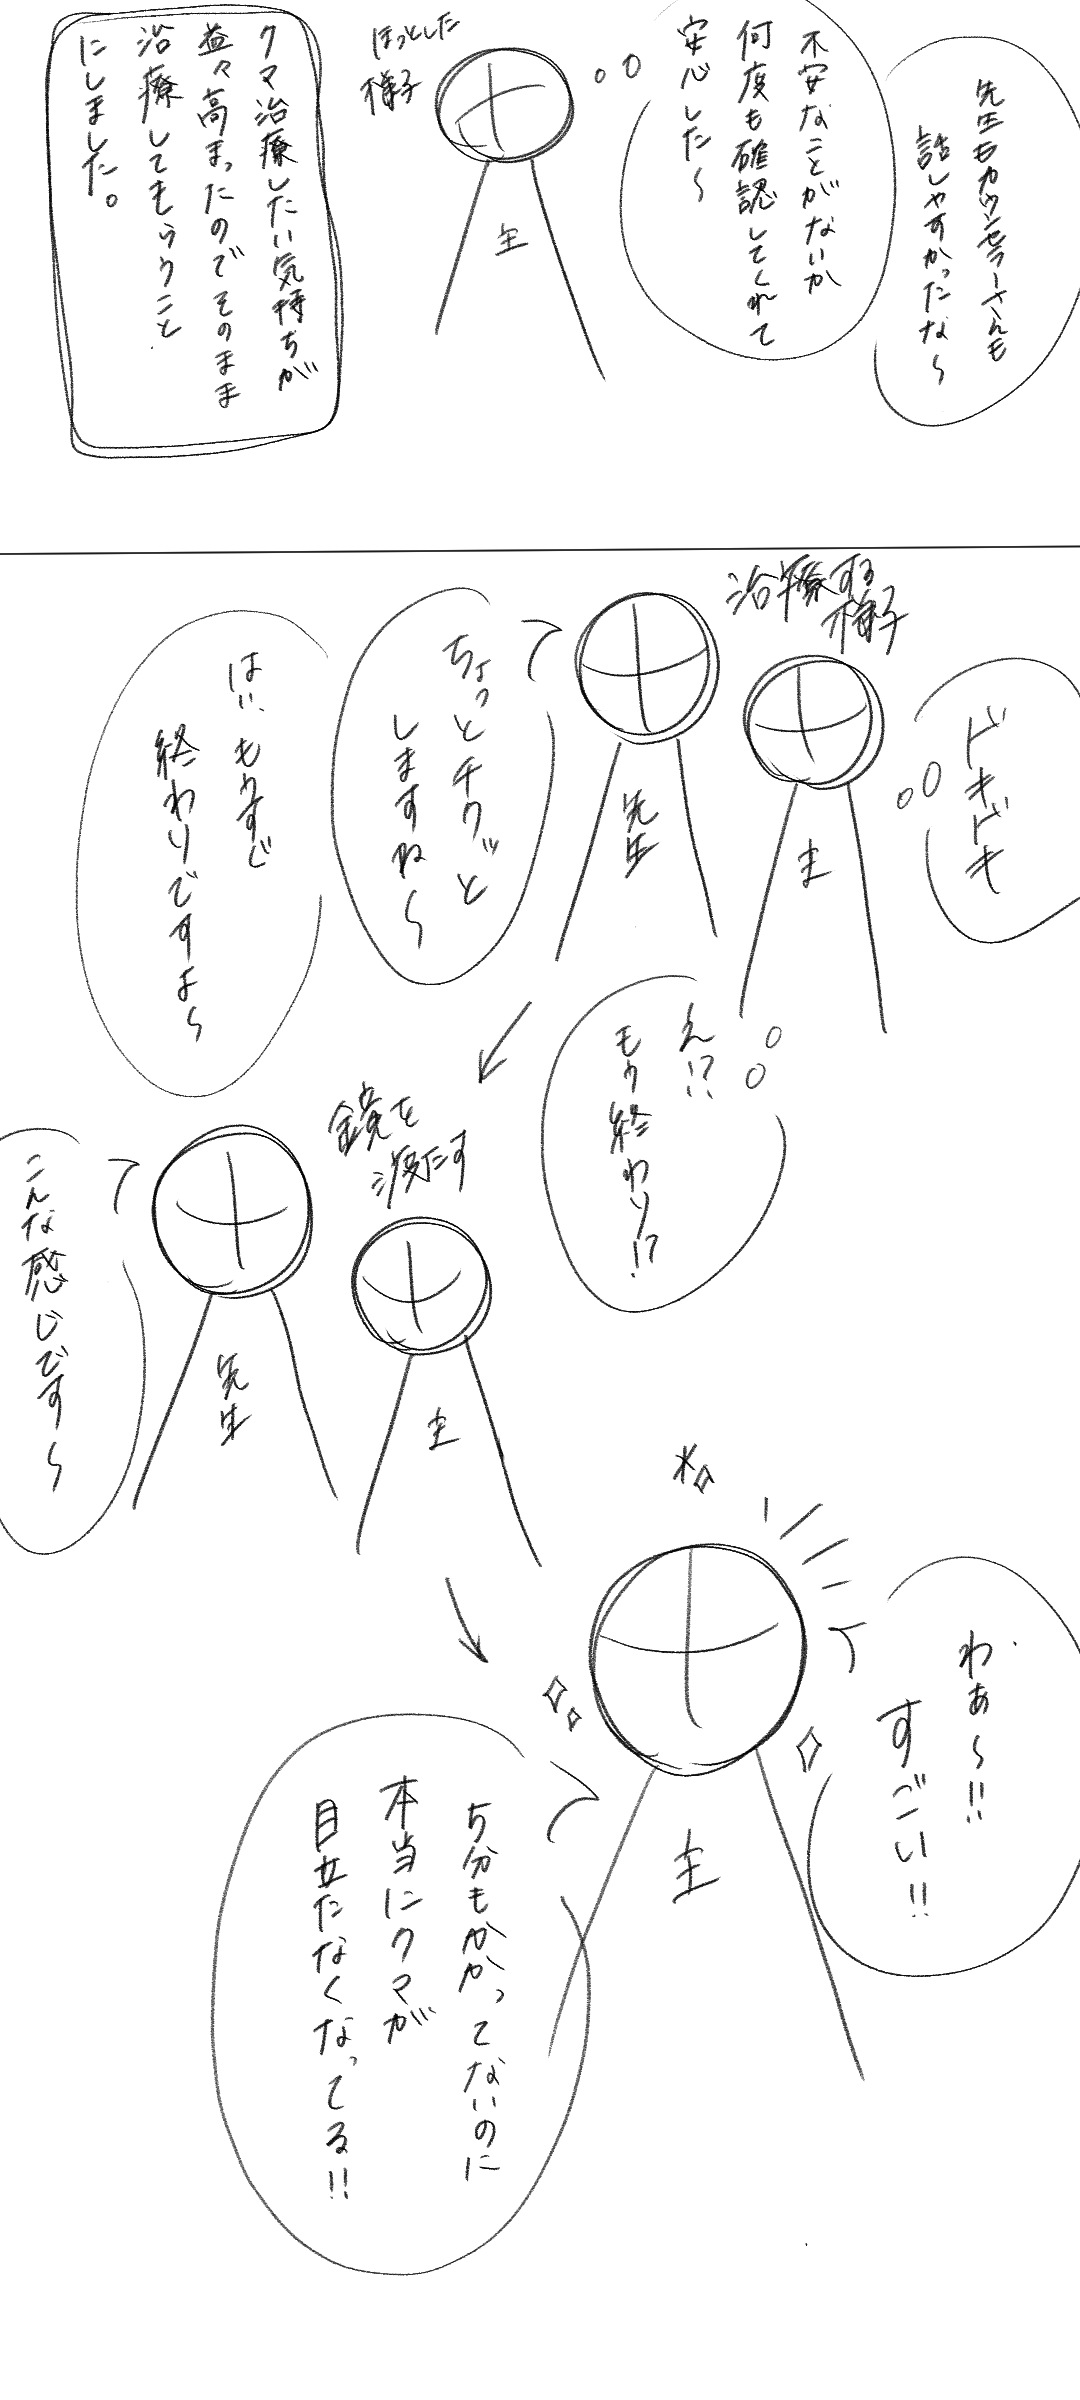 先生もカウンセラーさんも
話しやすかったな〜
不安なことがないか
何度も確認してくれて
安心した〜
ほっとした
様子
主
クマ治療したい気持ちが
益々高まったのでそのまま
治療してもらうこと
にしました。
治療する
様子
ドキドキ
主
先生
ちょっとチクッと
しますね〜
はい、もうすぐ
終わりですよ〜
え!?
もう終わり!?
鏡を
渡たす
主
先生
こんな感じです〜
わぁ〜!!
すごい!!
主
5分もかかってないのに
本当にクマが
目立たなくなってる!!